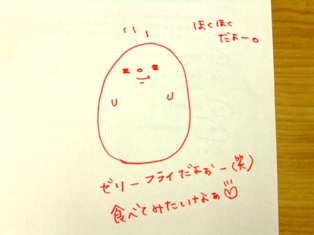 ほくほく
だぁー。
ゼリーフライだよぉー(笑)
食べてみたいなぁ♡